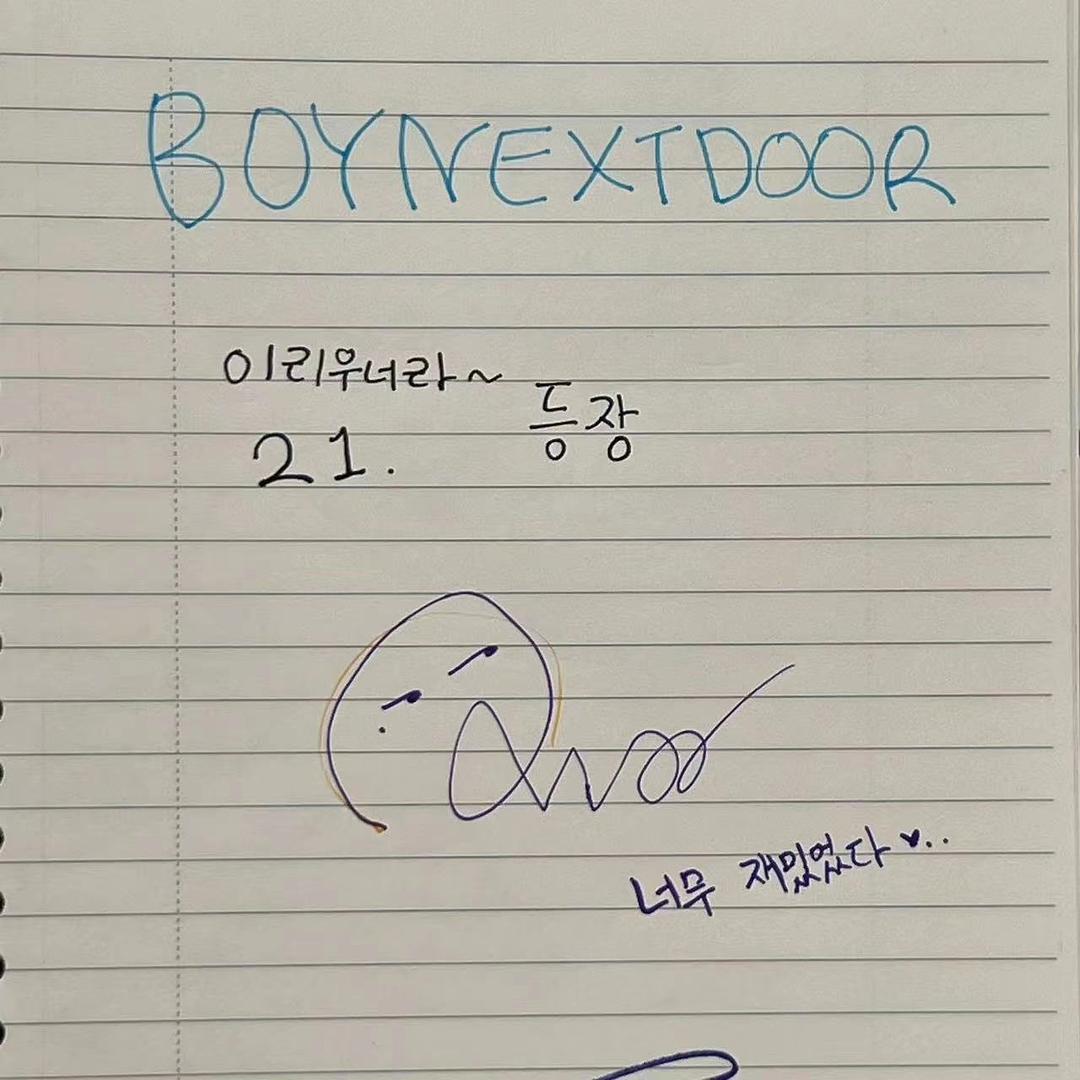 BOYNEXTDOOR
이리우너라~
등장
21.
너무 재밌었다 ♥..